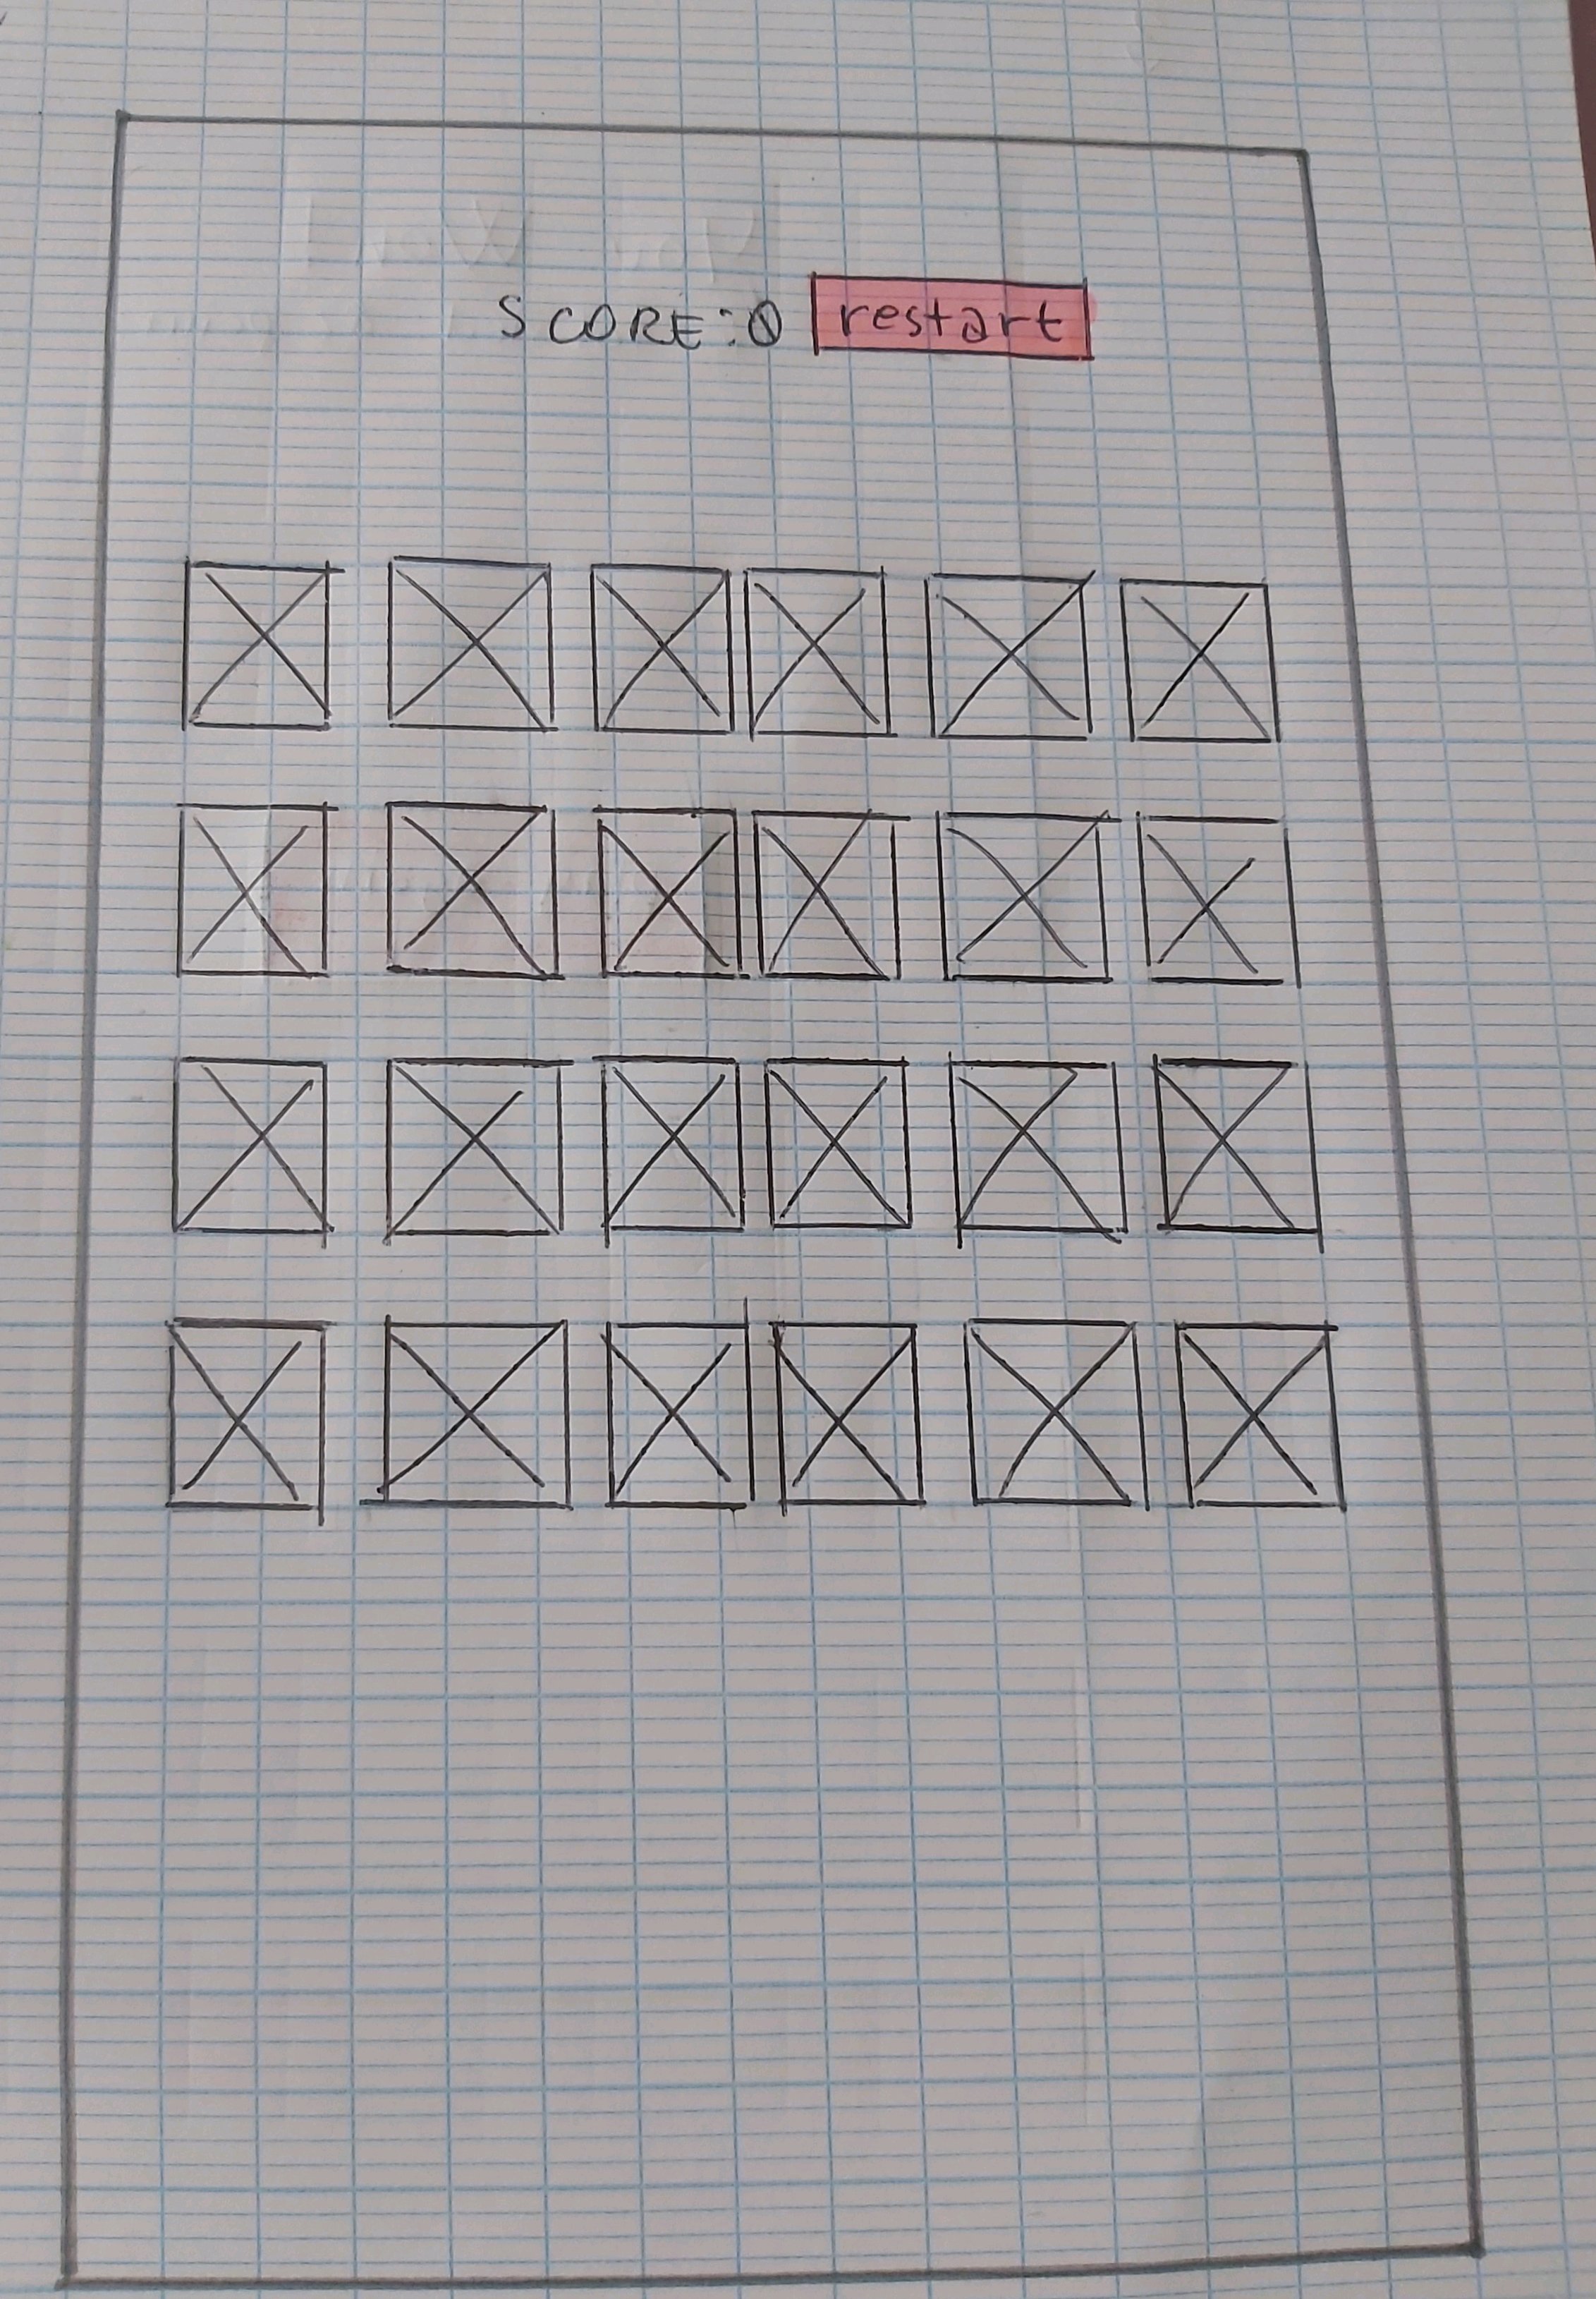 SCORE:0 restart